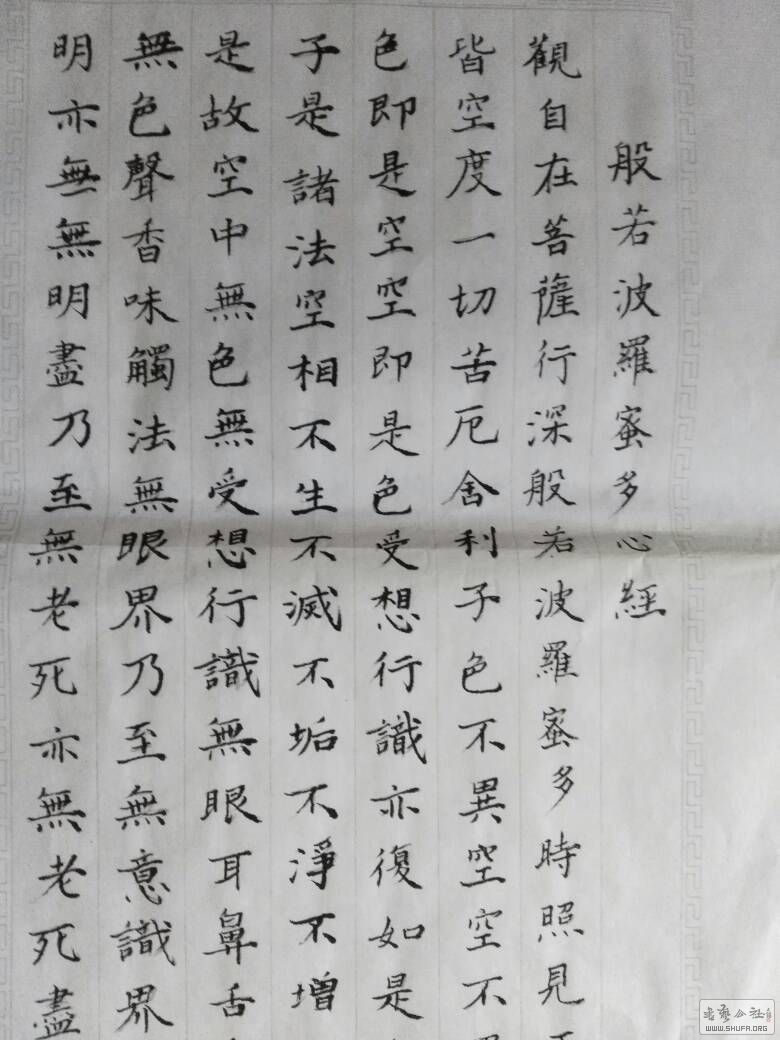 般若波羅蜜多心經
觀自在菩薩行深般若波羅蜜多時照見
皆空度一切苦厄舍利子色不異空空不
色即是空空即是色受想行識亦復如是
子是諸法空相不生不滅不垢不淨不增
是故空中無色無受想行識無眼耳鼻舌
無色聲香味觸法無眼界乃至無意識界
明亦無無明盡乃至無老死亦無老死盡
书艺公社
WWW.SHUFA.ORG